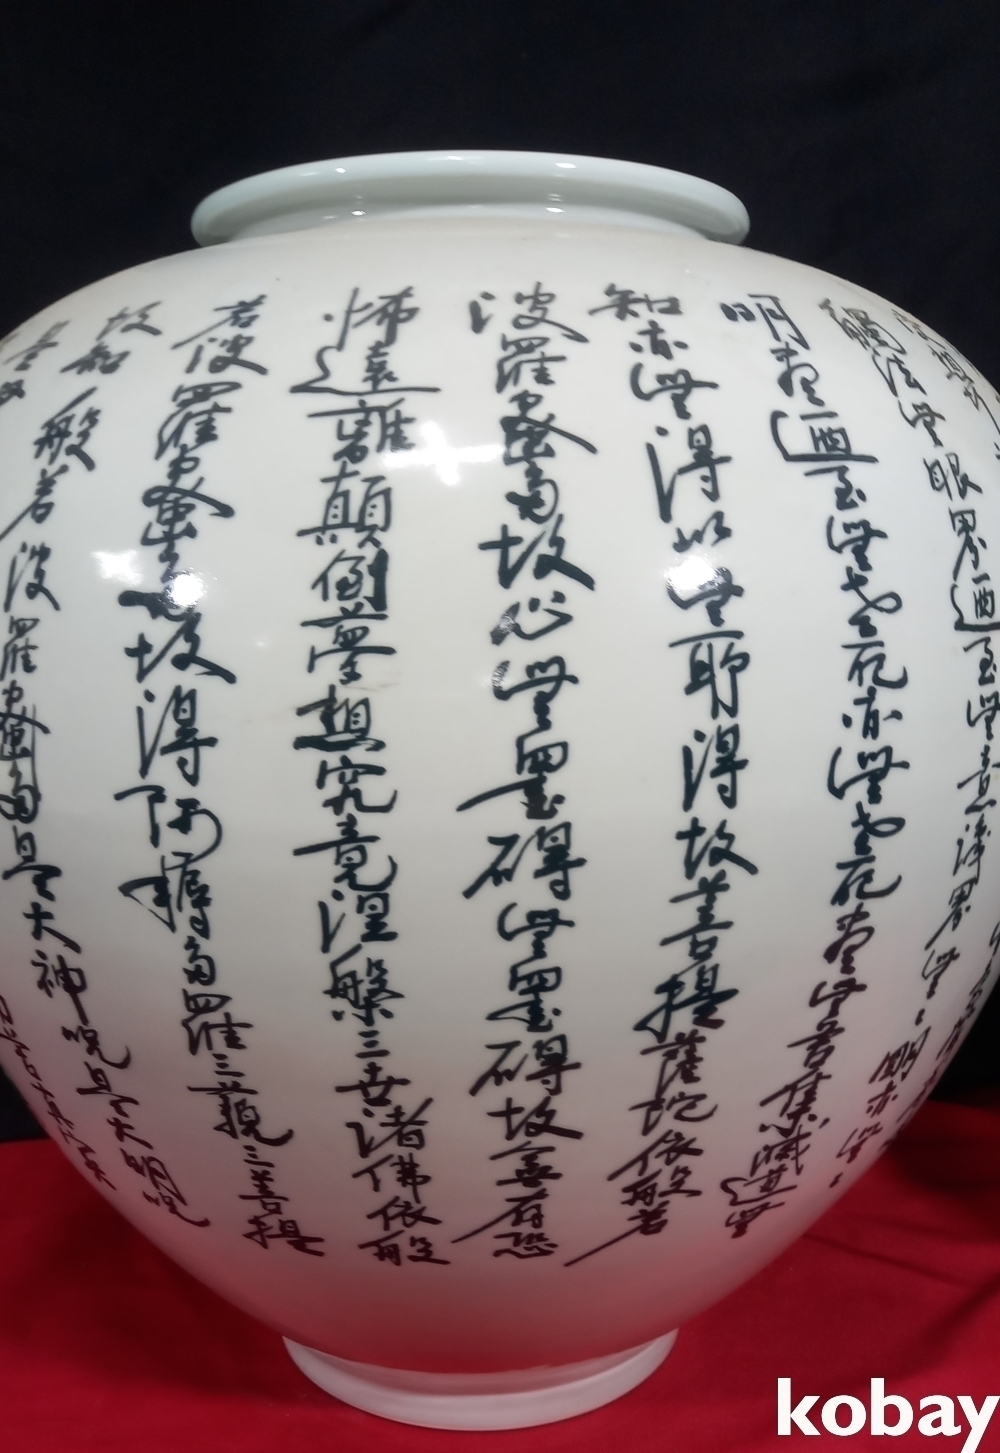 觸法無眼界迺至無意識界無無
明亦無無
明盡迺至無老死亦無老死盡無苦集滅道無
知亦無得以無所得故菩提薩埵依般若
波羅蜜多故心無罣礙無罣礙故無有恐
怖遠離顛倒夢想究竟涅槃三世諸佛依般
若波羅蜜多故得阿耨多羅三藐三菩提
故知般若波羅蜜多是大神呪是大明呪
kobay